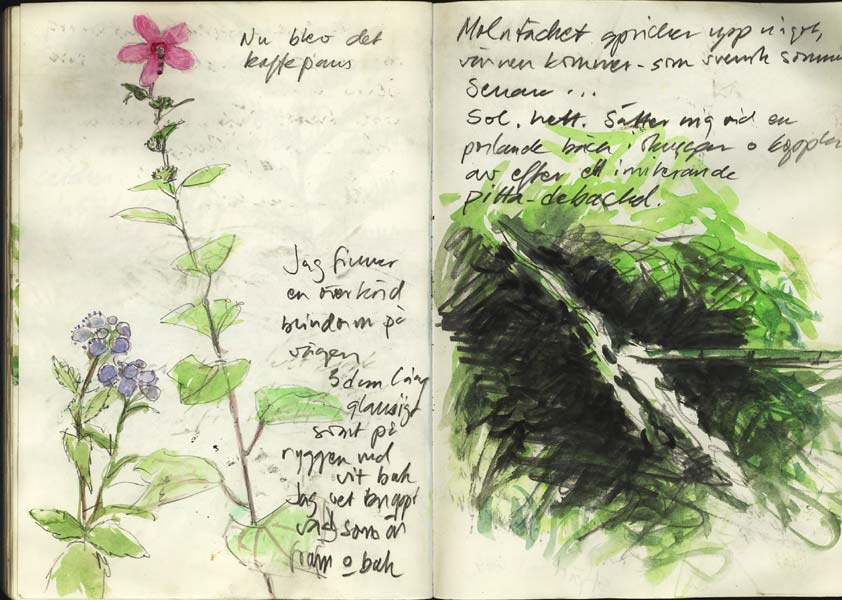 Nu blev det
kaffepaus
Jag finner
en överkörd
blindorm på
vägen
3 dm lång
glansigt
svart på
ryggen med
vit buk
Jag vet knappt
vad som är
fram o bak
Molntäcket spricker upp något,
värmen kommer - som svensk sommar
senare ...
Sol. hett. Sätter mig vid en
porlande bäck i skuggan o kopplar
av efter ett irriterande
pitta-debackel.